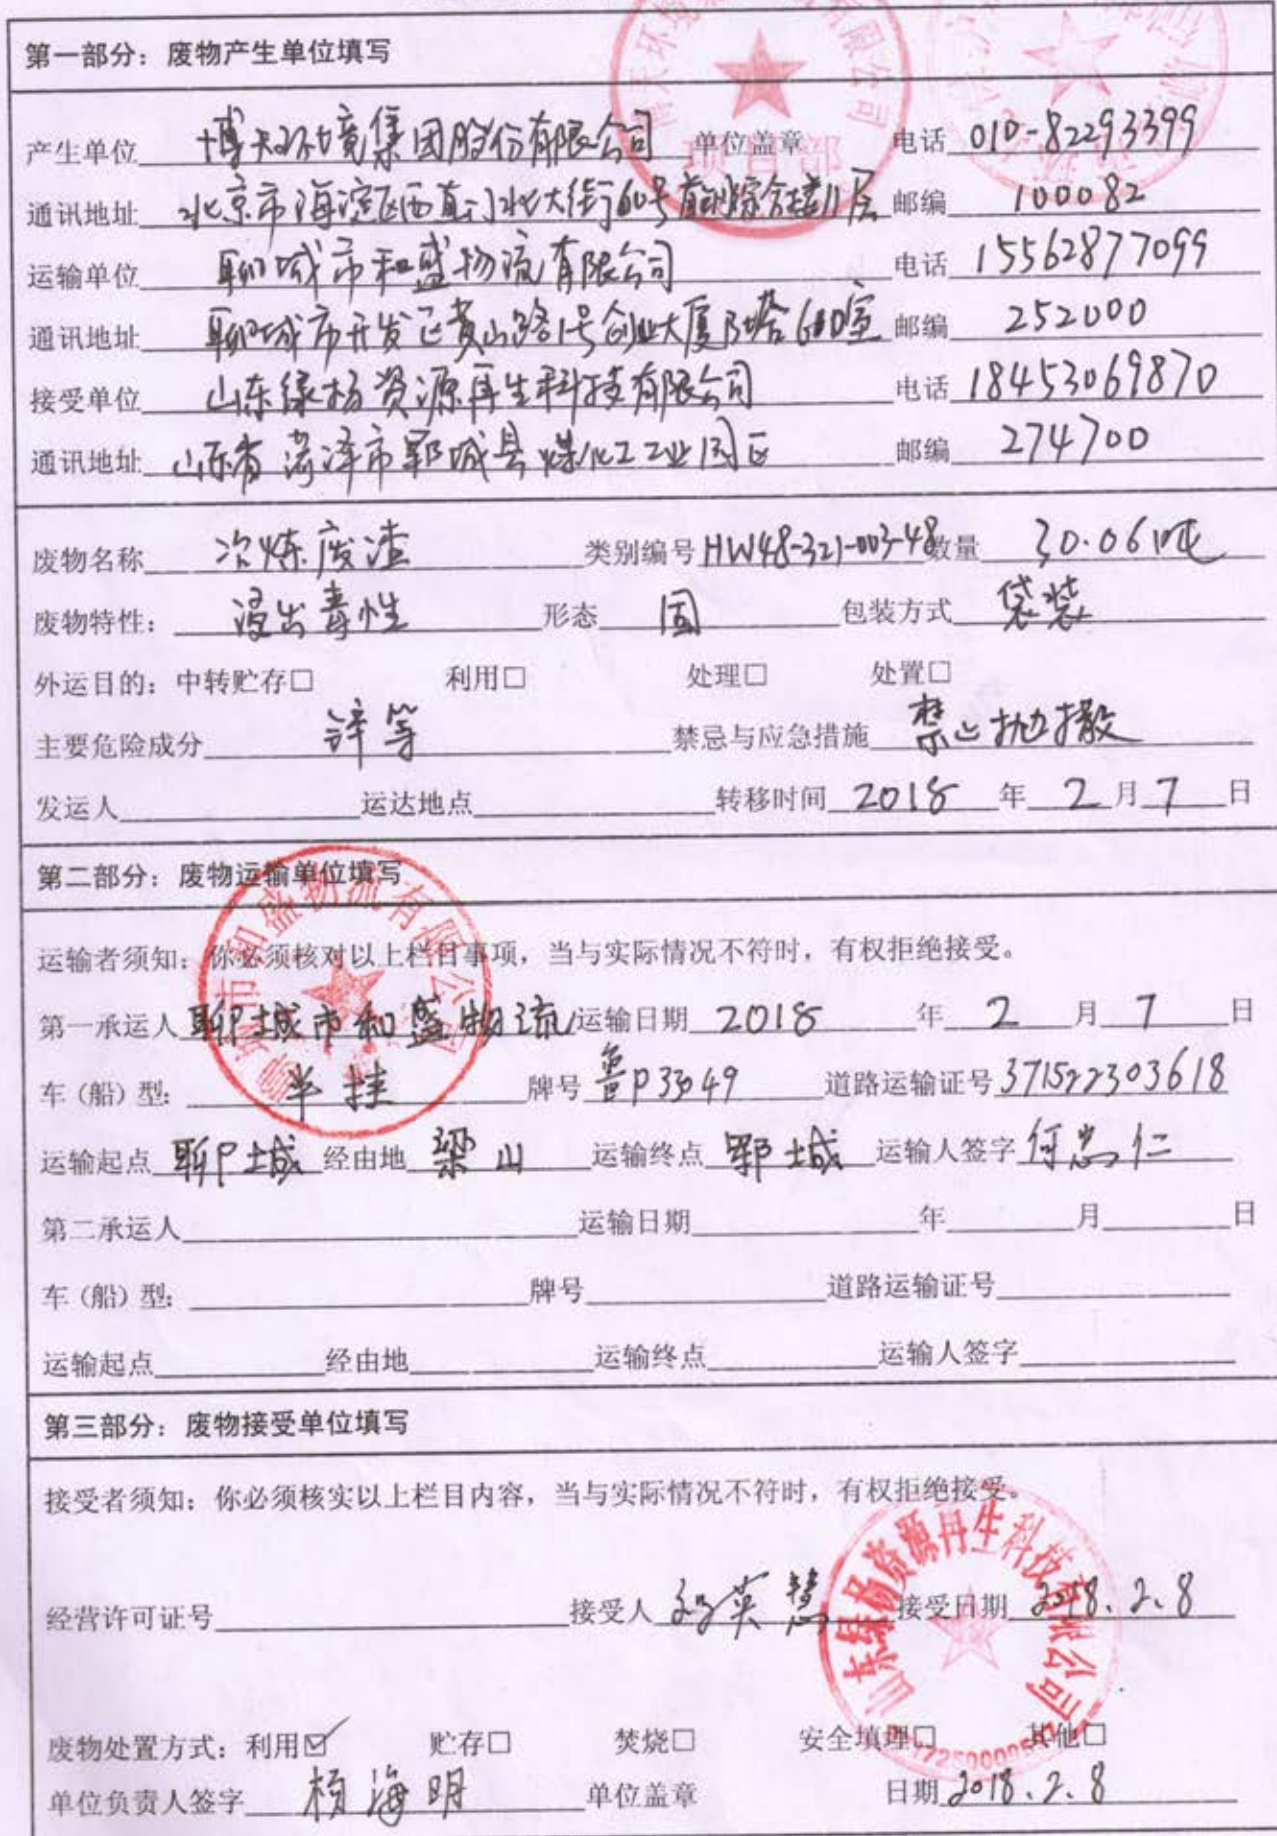 第一部分：废物产生单位填写
产生单位 博天环境集团股份有限公司 单位盖章 电话 010-82293399
通讯地址 北京市海淀区西直门北大街60号首钢综合楼11层 邮编 100082
运输单位 聊城市和盛物流有限公司 电话 15562877099
通讯地址 聊城市开发区黄山路1号创业大厦B塔600室 邮编 252000
接受单位 山东绿扬资源再生科技有限公司 电话 18453069870
通讯地址 山东省菏泽市郓城县煤化工工业园区 邮编 274700
废物名称 冶炼废渣 类别编号 HW48-321-003-48 数量 30.06吨
废物特性： 浸出毒性 形态 固 包装方式 袋装
外运目的：中转贮存□ 利用□ 处理□ 处置□
主要危险成分 锌等 禁忌与应急措施 禁止抛撒
发运人 运达地点 转移时间 2018 年 2 月 7 日
第二部分：废物运输单位填写
运输者须知：你必须核对以上栏目事项，当与实际情况不符时，有权拒绝接受。
第一承运人 聊城市和盛物流 运输日期 2018 年 2 月 7 日
车（船）型： 半挂 牌号 鲁P33049 道路运输证号 371522303618
运输起点 聊城 经由地 梁山 运输终点 郓城 运输人签字 何忠仁
第二承运人 运输日期 年 月 日
车（船）型： 牌号 道路运输证号
运输起点 经由地 运输终点 运输人签字
第三部分：废物接受单位填写
接受者须知：你必须核实以上栏目内容，当与实际情况不符时，有权拒绝接受。
经营许可证号 接受人 英慧 接受日期 2018.2.8
废物处置方式：利用☑ 贮存□ 焚烧□ 安全填埋□ 其他□
单位负责人签字 杨海明 单位盖章 日期 2018.2.8